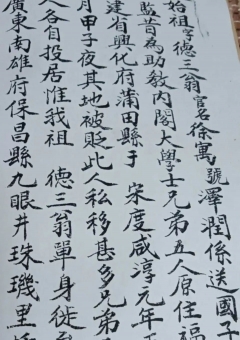 始祖字德三翁官名徐寓號澤潤係送國子
監昔為助教內閣大學士兄弟五人原住福
建省興化府蒲田縣于 宋度咸淳元年
月甲子夜其地被貶此人私移甚多兄弟
人各自投居惟我祖 德三翁單身徙
廣東南雄府保昌縣九眼井珠璣里